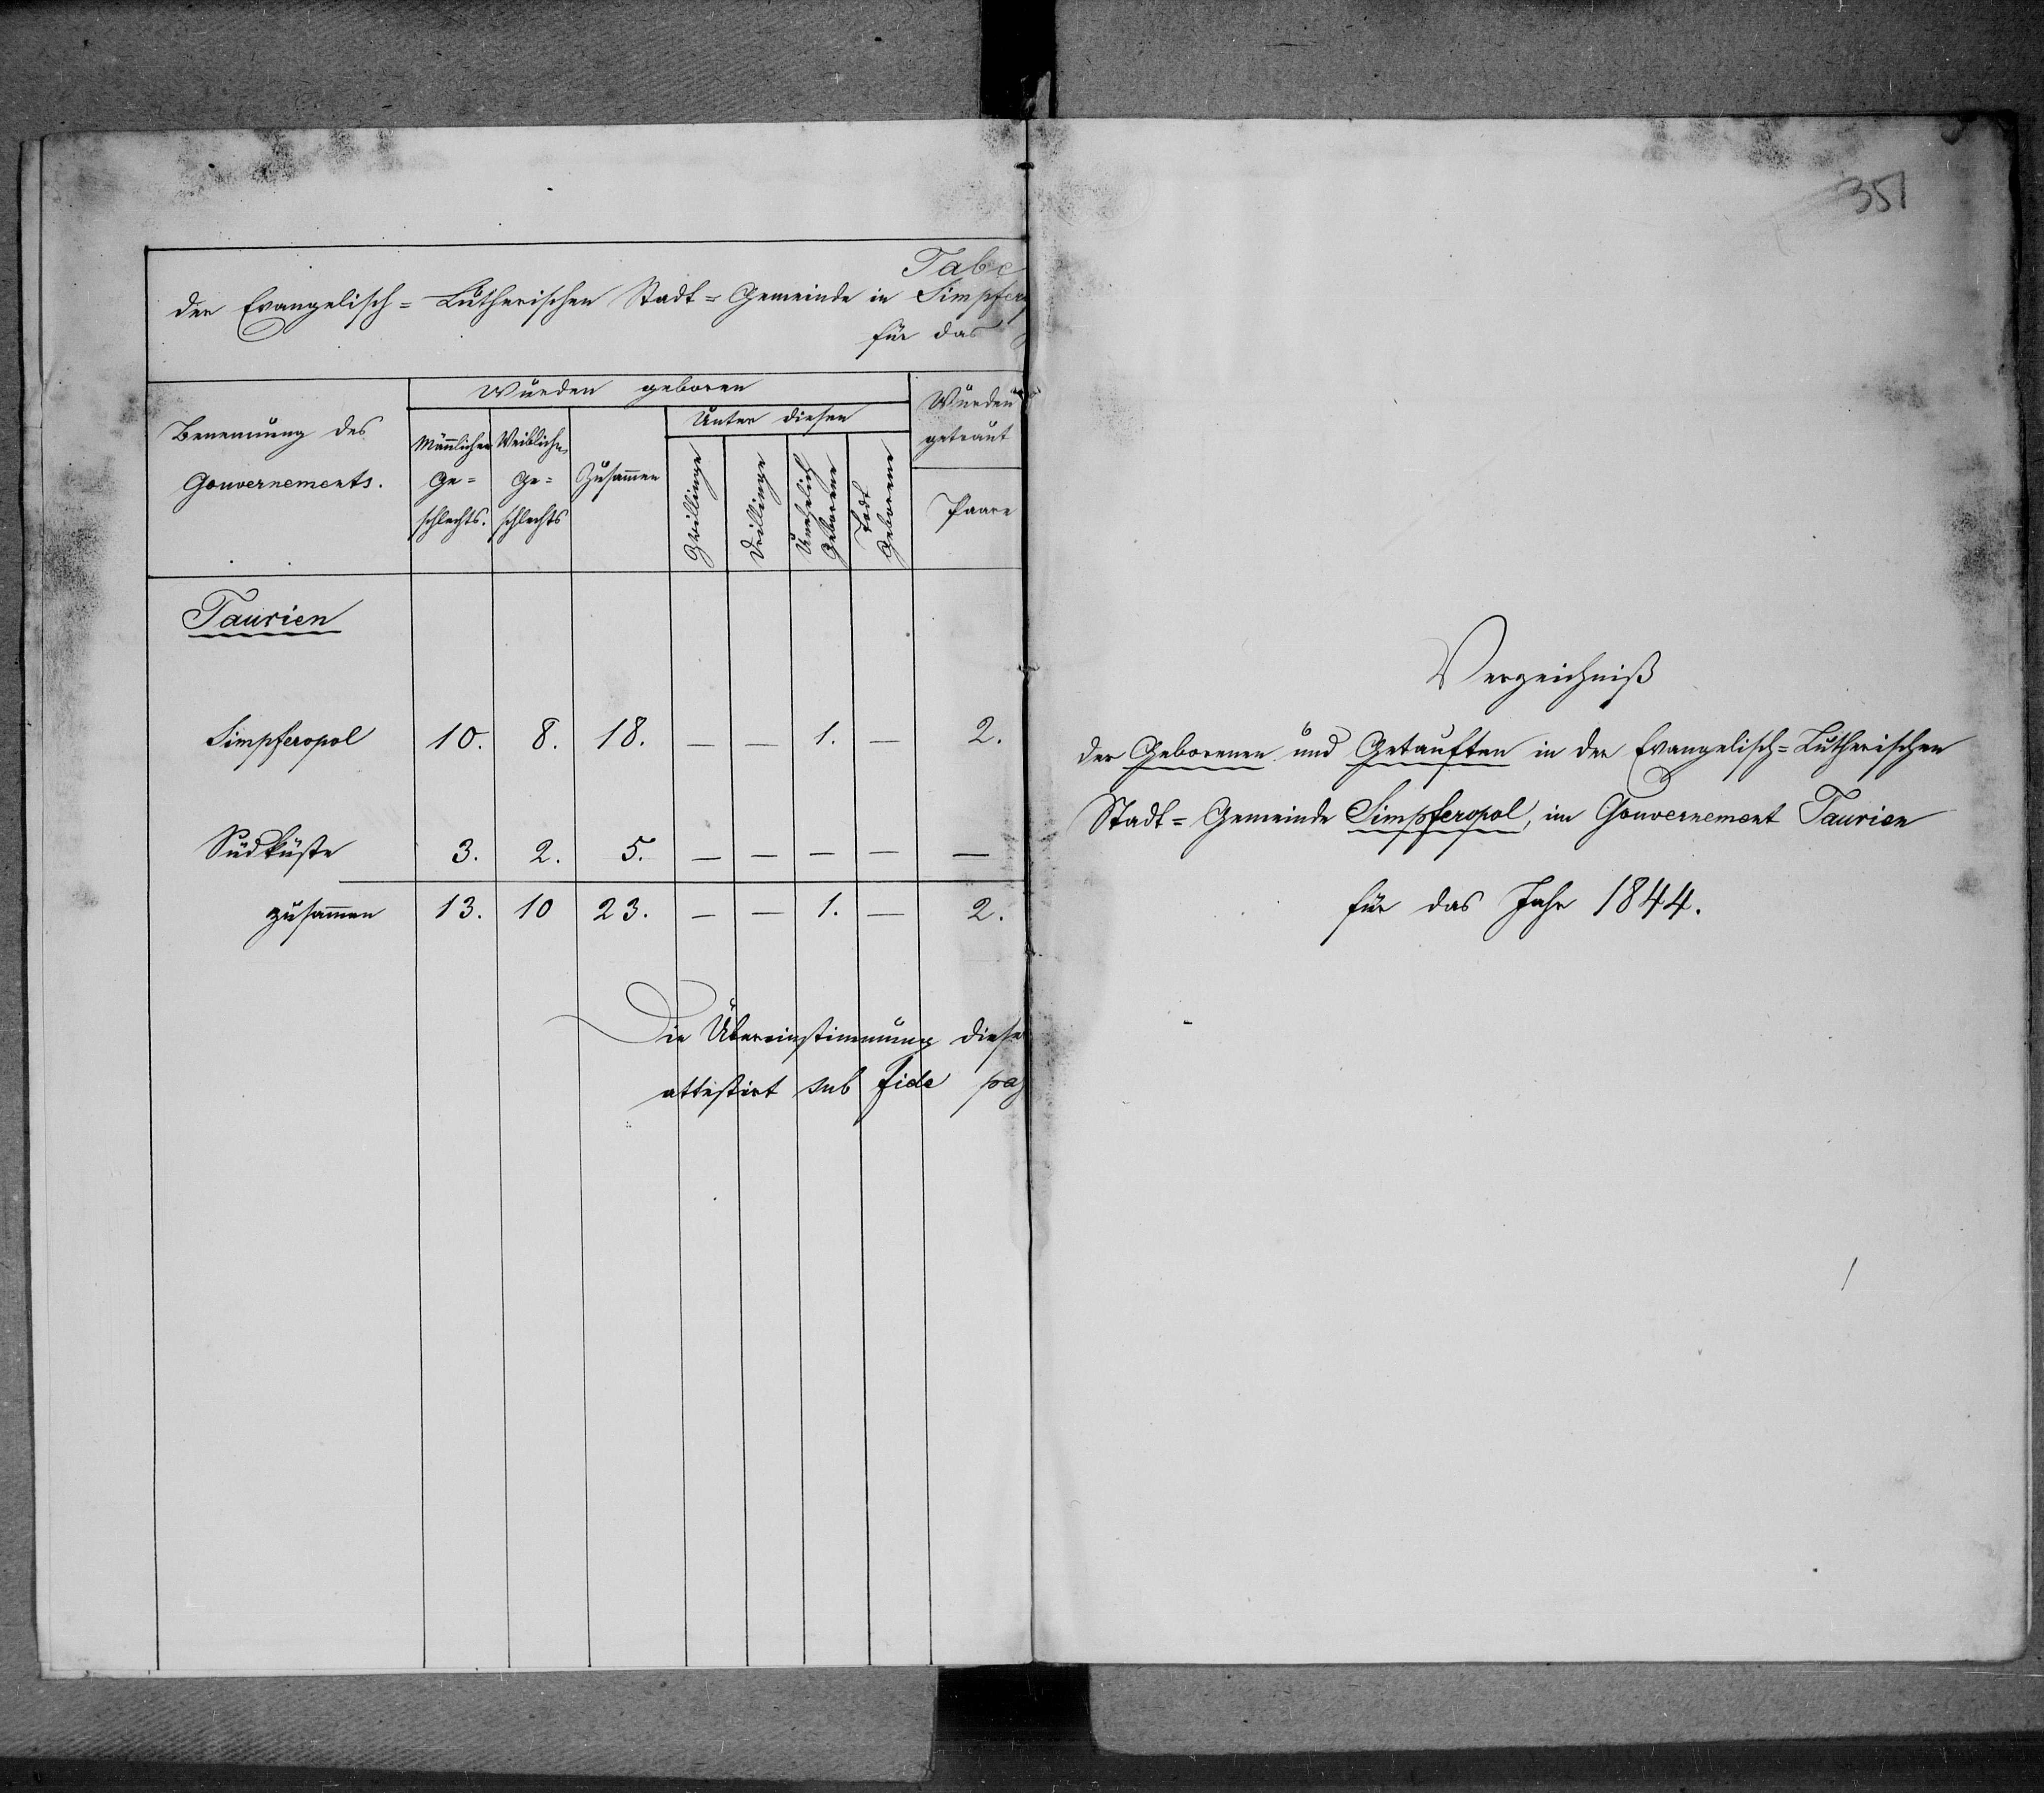 Tabe
der Evangelisch=Lutherischen Stadt=Gemeinde in Simpfero
für das
Benennung des
Gouvernements.
Wurden geboren
Männlichen
Ge=
schlechts.
Weiblichen
Ge=
schlechts
Zusam̅en
Unter diesen
Zwillinge
Drillinge
Unehelich
Geborene
Todt
Geborene
Wurden
getraut
Paare
Taurien
Simpferopol 10. 8. 18. — — 1. — 2.
Südküste 3. 2. 5. — — — — —
zusam̅en 13. 10 23. — — 1. — 2.
Die Übereinstimmung diese
attestirt sub fide pa
351
Verzeichniß
der Geborenen und Getauften in der Evangelisch=Lutherischen
Stadt=Gemeinde Simpferopol, im Gouvernement Taurien
für das Jahr 1844.